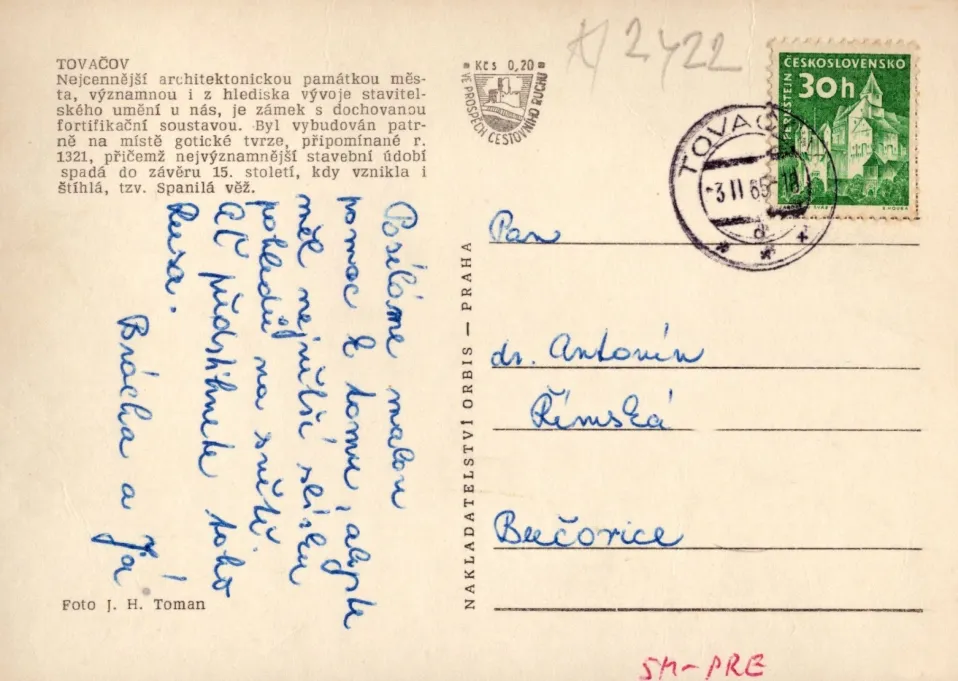 TOVAČOV
Nejcennější architektonickou památkou měs-
ta, významnou i z hlediska vývoje stavitel-
ského umění u nás, je zámek s dochovanou
fortifikační soustavou. Byl vybudován patr-
ně na místě gotické tvrze, připomínané r.
1321, přičemž nejvýznamnější stavební údobí
spadá do závěru 15. století, kdy vznikla i
štíhlá, tzv. Spanilá věž.
Kčs 0,20
VE PROSPĚCH CESTOVNÍHO RUCHU
2422
ČESKOSLOVENSKO
30h
PERNŠTEJN
TOVAČOV
-3 II 65-18
d
Posíláme malou
pomoc k tomu, abyste
měl největší sbírku
pohledů na světě.
Ať předstihnete toho
Rusa.
Brácha a Já
Pan
dr. Antonín
Římská
Bučovice
NAKLADATELSTVÍ ORBIS — PRAHA
Foto J. H. Toman
SM-PRE